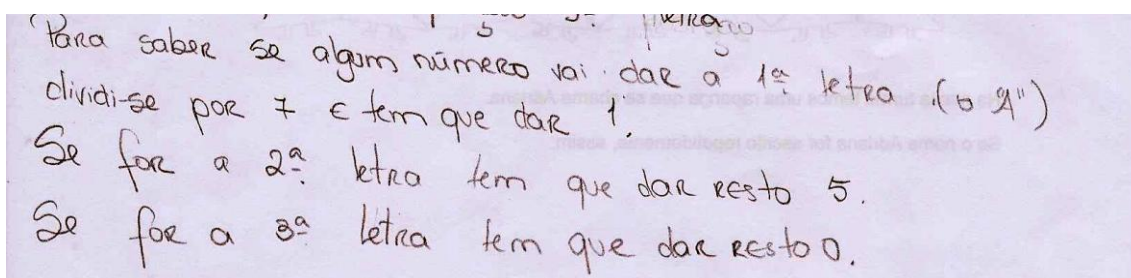 Para saber se algum número vai dar a 1ª letra (o "A")
dividi-se por 7 e tem que dar 1.
Se for a 2ª letra tem que dar resto 5.
Se for a 3ª letra tem que dar resto 0.